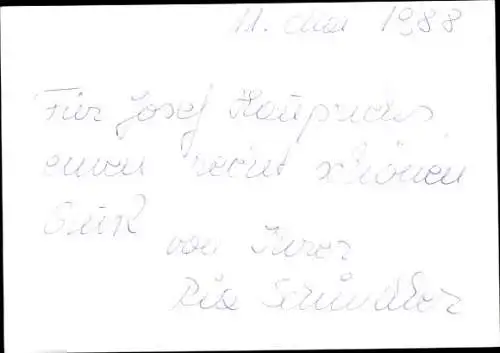 11. Mai 1988
Für Josef Hauprichs,
einen recht schönen
Gruß
von Ihrer
Schindler